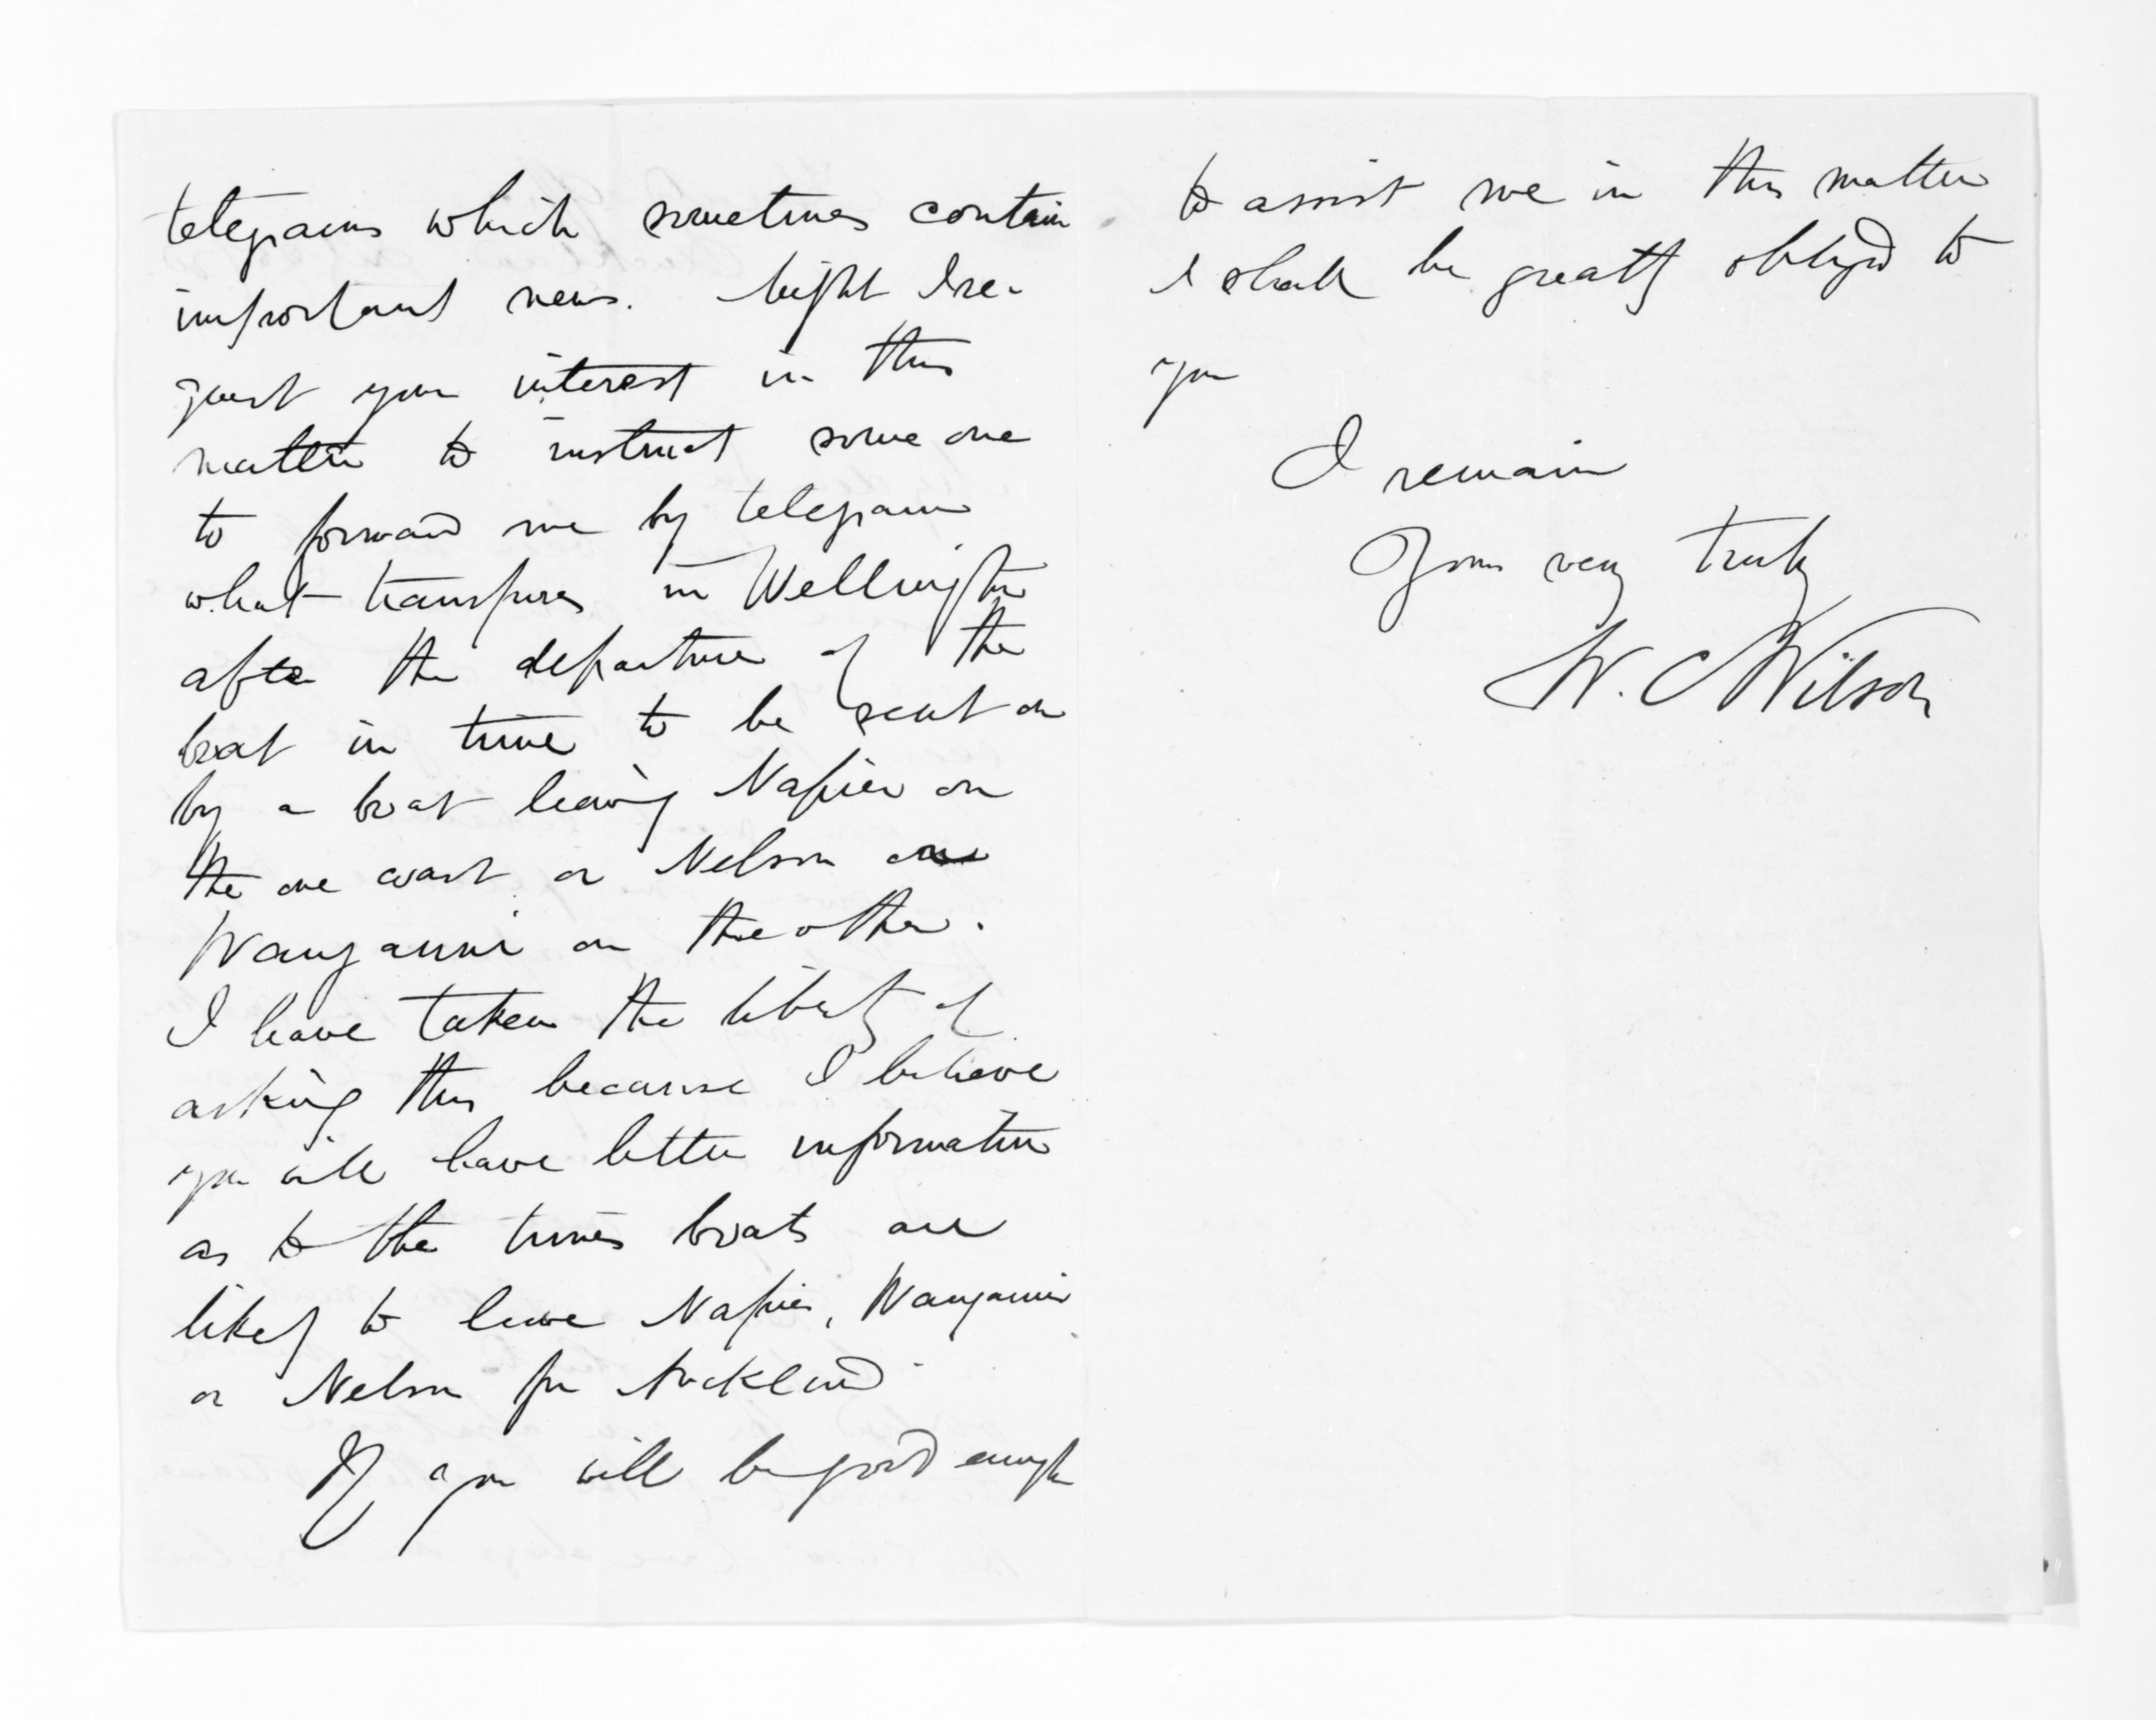 telegrams which sometimes contain
important news. Might I re-
quest your interest in this
matter to instruct some one
to forward me by telegram
what transpires in Wellington
after the departure of the
boat in time to be sent on
by a boat leaving Napier on
the one coast or Nelson or
Wanganui on the other.
I have taken the liberty of
asking this because I believe
you will have better information
as to the times boats are
likely to leave Napier, Wanganui
or Nelson for Auckland
If you will be good enough
to assist me in this matter
I shall be greatly obliged to
you
I remain
Yours very truly
W. C Wilson